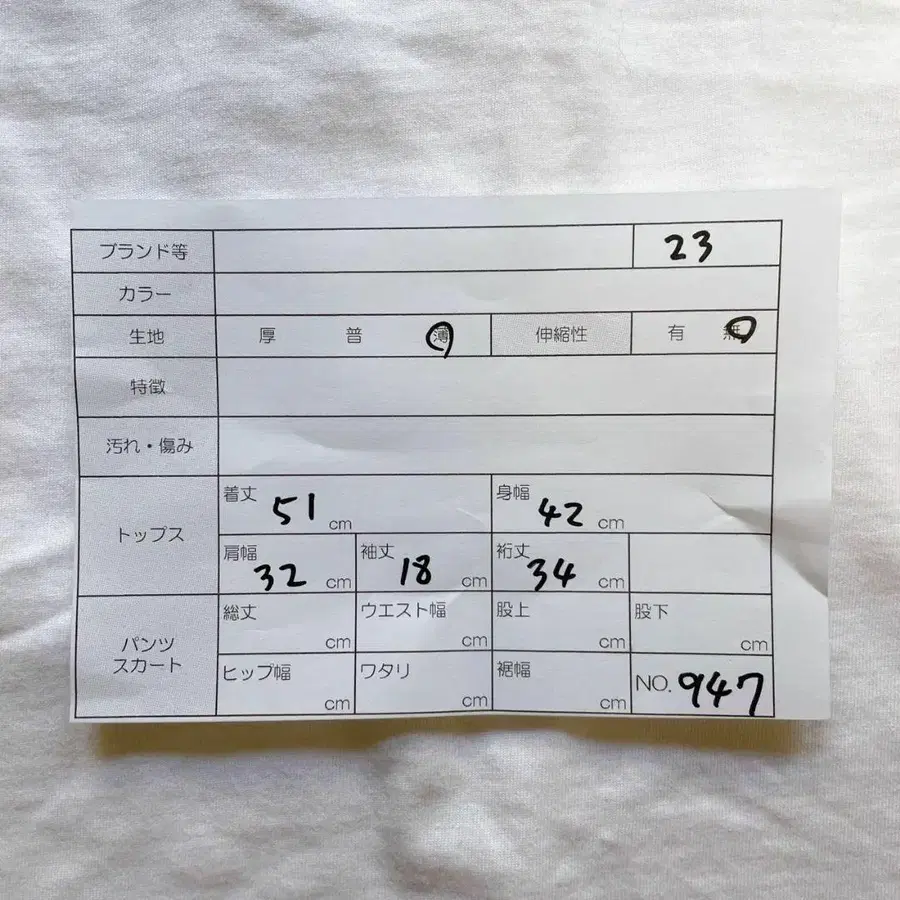 ブランド等 23
カラー
生地 厚 普 薄 伸縮性 有 無
特徴
汚れ・傷み
トップス
着丈 51 cm 身幅 42 cm
肩幅 32 cm 袖丈 18 cm 裄丈 34 cm
パンツ
スカート
総丈 cm ウエスト幅 cm 股上 cm 股下 cm
ヒップ幅 cm ワタリ cm 裾幅 cm NO. 947